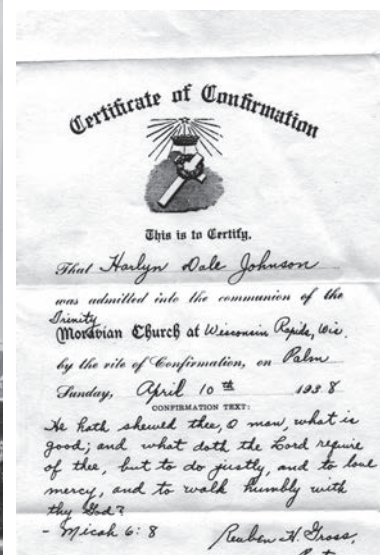 Certificate of Confirmation
This is to Certify,
That Harlyn Dale Johnson
was admitted into the communion of the
Trinity
Moravian Church at Wisconsin Rapids, Wis.
by the rite of Confirmation, on Palm
Sunday, April 10th 1938
CONFIRMATION TEXT:
He hath shewed thee, O man, what is
good; and what doth the Lord require
of thee, but to do justly, and to love
mercy, and to walk humbly with
thy God?
- Micah 6:8
Reuben H. Gross,